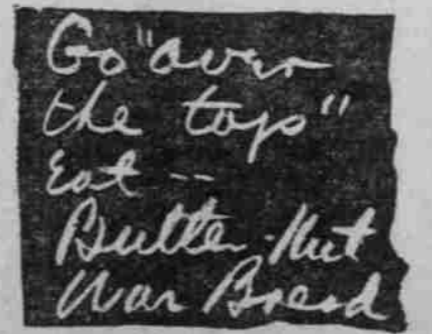 Go "over
the top"
Eat --
Butter-Nut
War Bread